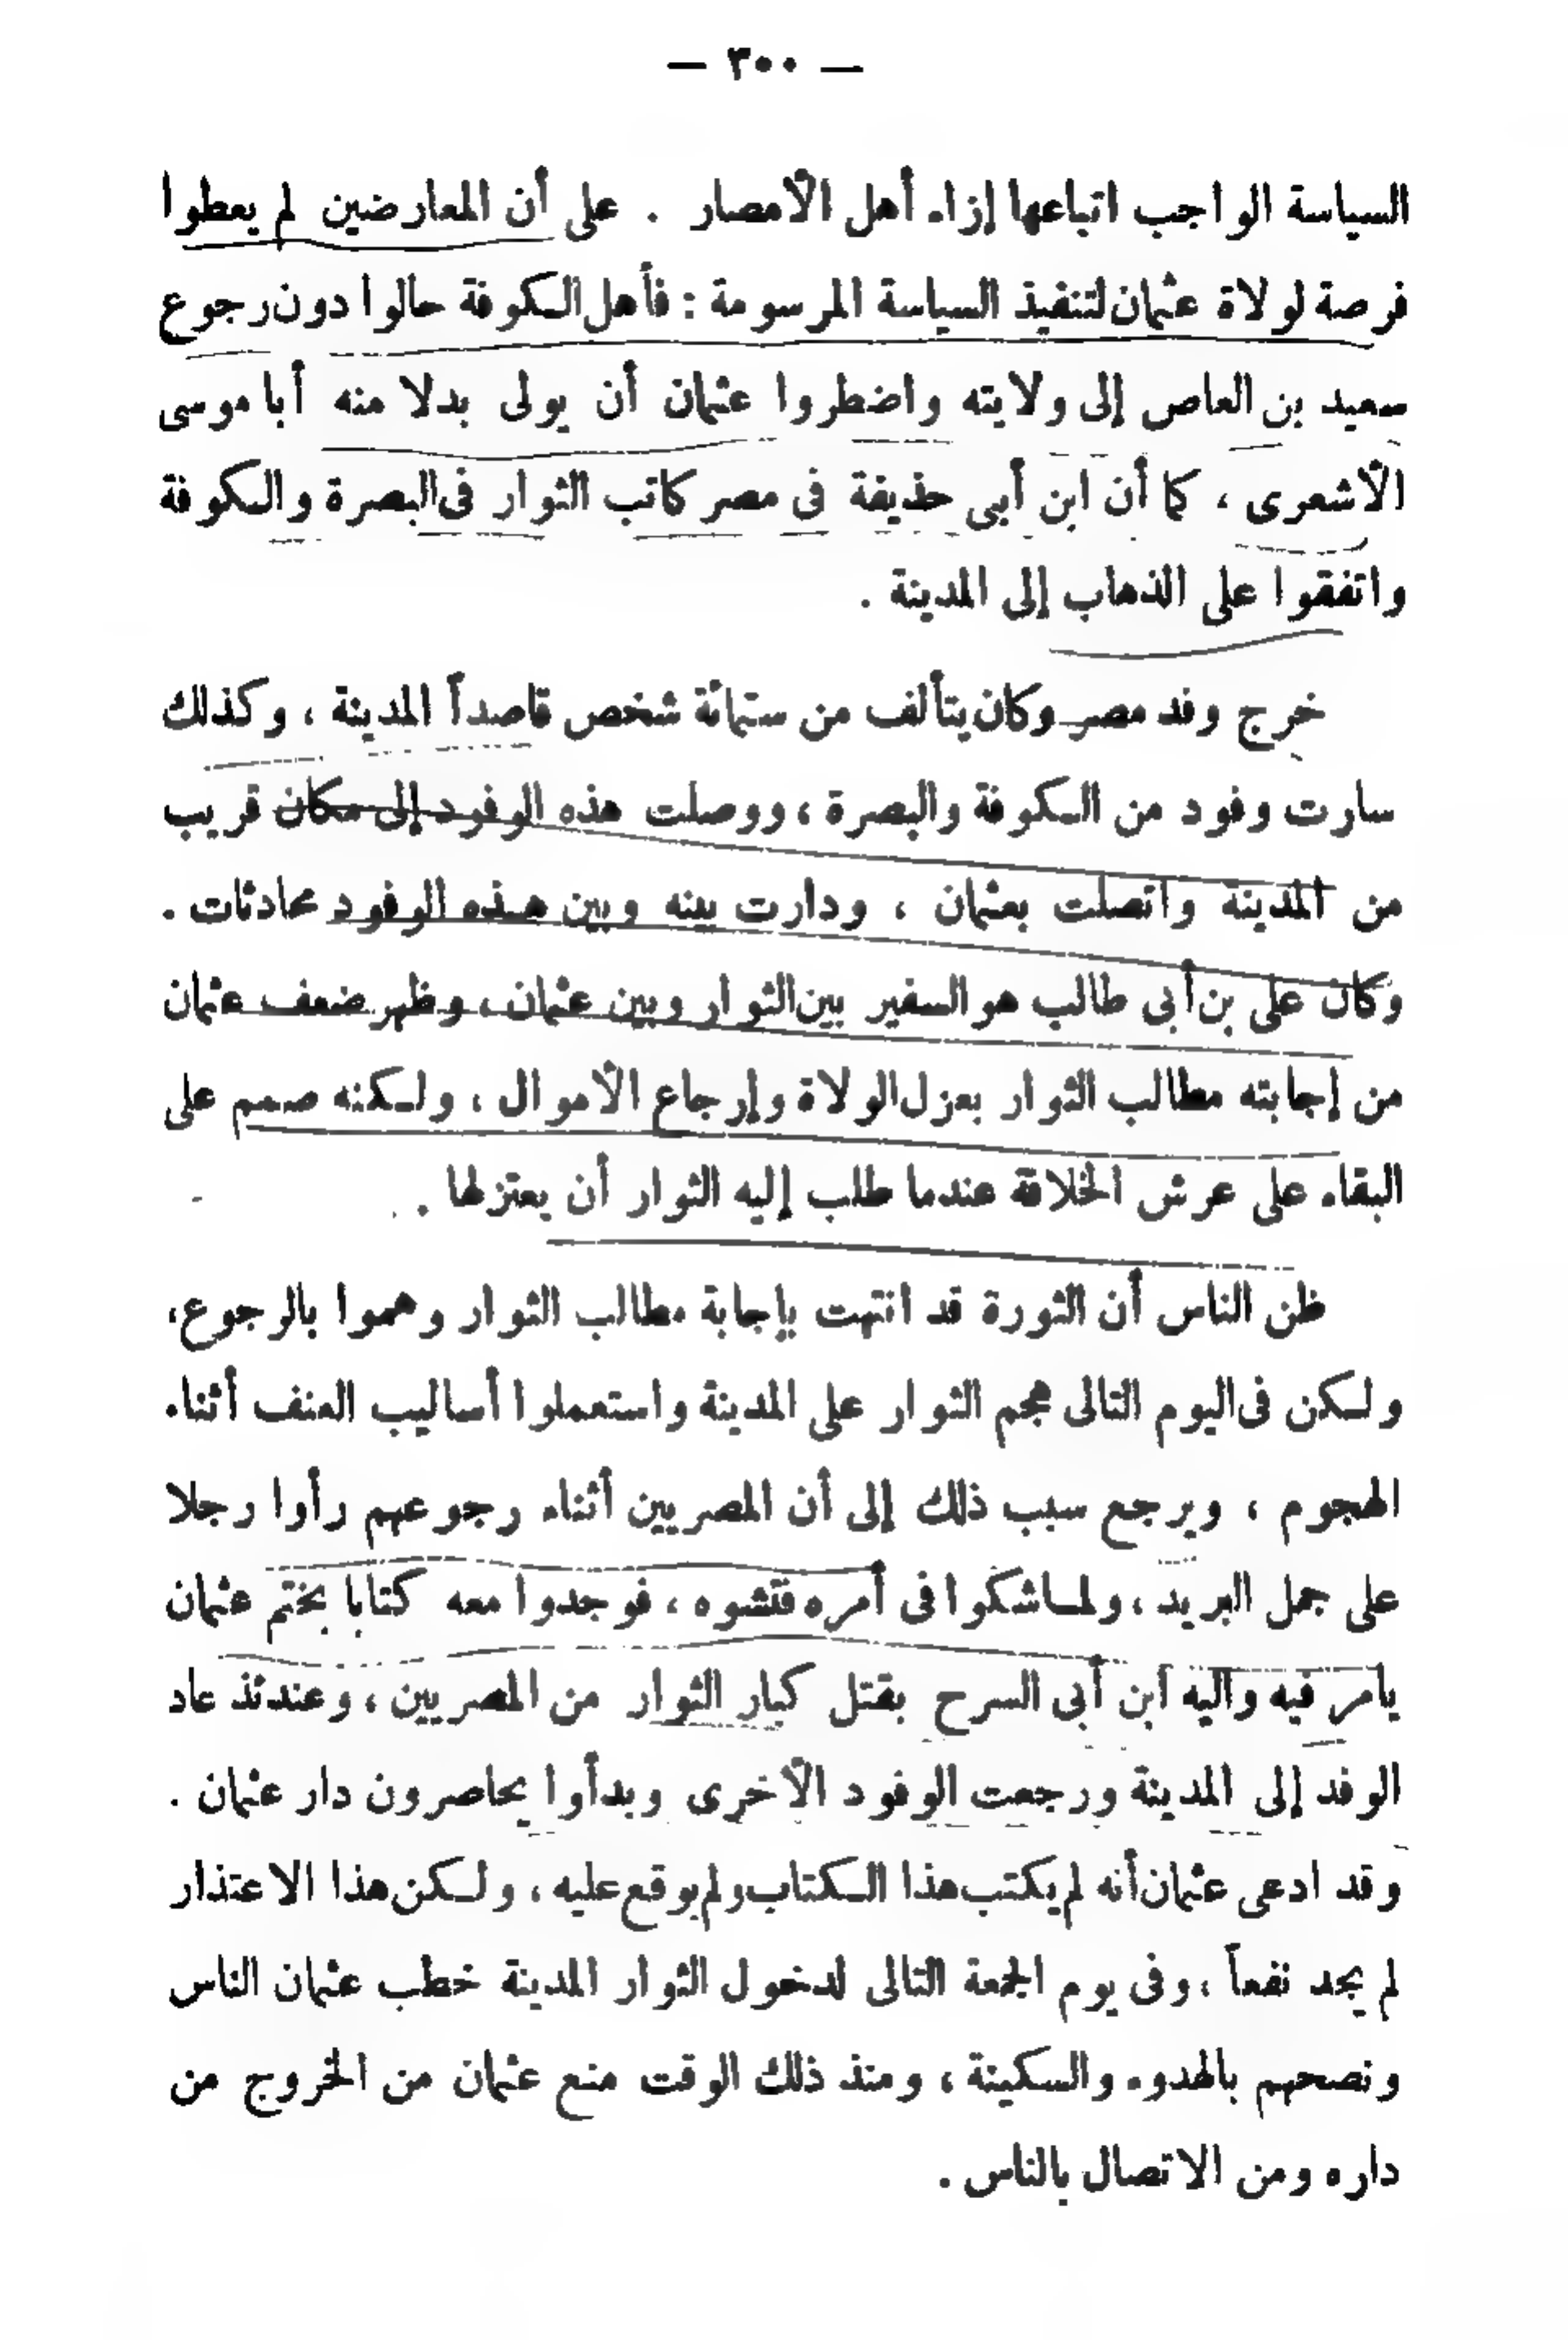 — ٣٠٠ —
السياسة الواجب اتباعها إزاء أهل الأمصار . على أن المعارضين لم يعطوا
فرصة لولاة عثمان لتنفيذ السياسة المرسومة : فأهل الكوفة حالوا دون رجوع
سعيد بن العاص إلى ولايته واضطروا عثمان أن يولى بدلا منه أبا موسى
الأشعرى ، كما أن ابن أبى حذيفة فى مصر كاتب الثوار فى البصرة والكوفة
واتفقوا على الذهاب إلى المدينة .
خرج وفد مصر وكان يتألف من ستمائة شخص قاصداً المدينة ، وكذلك
سارت وفود من الكوفة والبصرة ، ووصلت هذه الوفود إلى مكان قريب
من المدينة واتصلت بعثمان ، ودارت بينه وبين هذه الوفود محادثات .
وكان على بن أبى طالب هو السفير بين الثوار وبين عثمان ، وظهر ضعف عثمان
من إجابته مطالب الثوار بعزل الولاة وإرجاع الأموال ، ولكنه صمم على
البقاء على عرش الخلافة عندما طلب إليه الثوار أن يعتزلها .
ظن الناس أن الثورة قد انتهت بإجابة مطالب الثوار وهموا بالرجوع،
ولكن فى اليوم التالى هجم الثوار على المدينة واستعملوا أساليب العنف أثناء
الهجوم ، ويرجع سبب ذلك إلى أن المصريين أثناء رجوعهم رأوا رجلا
على جمل البريد ، ولما شكوا فى أمره فتشوه ، فوجدوا معه كتابا بختم عثمان
يأمر فيه واليه ابن أبى السرح بقتل كبار الثوار من المصريين ، وعندئذ عاد
الوفد إلى المدينة ورجعت الوفود الأخرى وبدأوا يحاصرون دار عثمان .
وقد ادعى عثمان أنه لم يكتب هذا الكتاب ولم يوقع عليه ، ولكن هذا الاعتذار
لم يجد نفعاً ، وفى يوم الجمعة التالى لدخول الثوار المدينة خطب عثمان الناس
ونصحهم بالهدوء والسكينة ، ومنذ ذلك الوقت منع عثمان من الخروج من
داره ومن الاتصال بالناس .